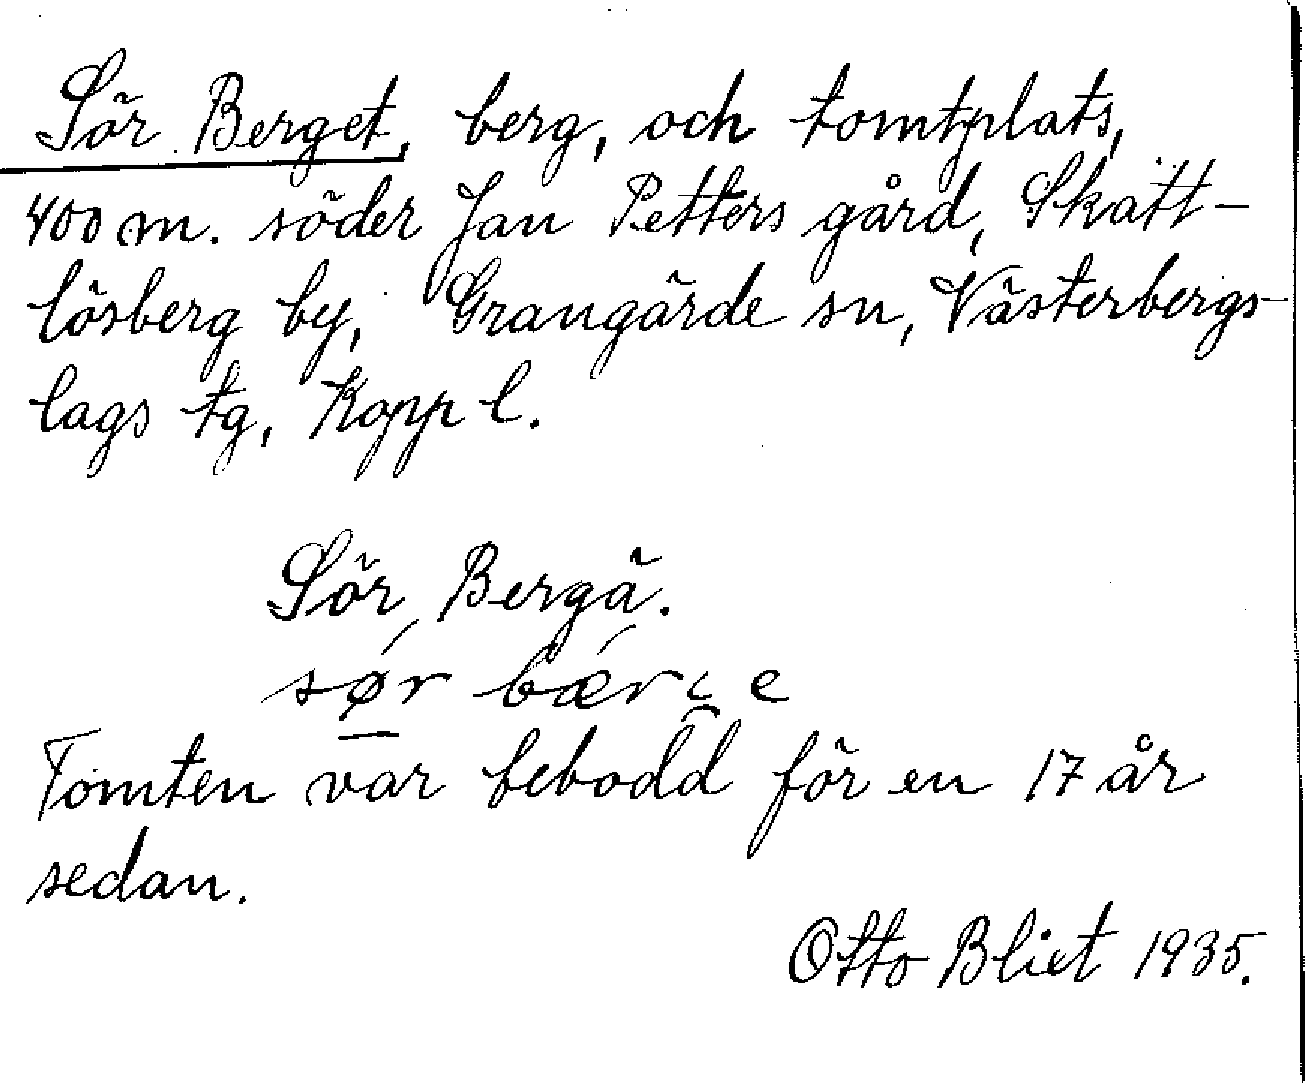 Sör Berget, berg, och tomtplats,
400 m. söder Jan Petters gård, Skätt-
lösberg by, Grangärde sn, Västerbergs-
lags tg, Kopp l.
Sör Bergä.
sør bær e
Tomten var bebodd för en 17 år
sedan.
Otto Bliet 1935.